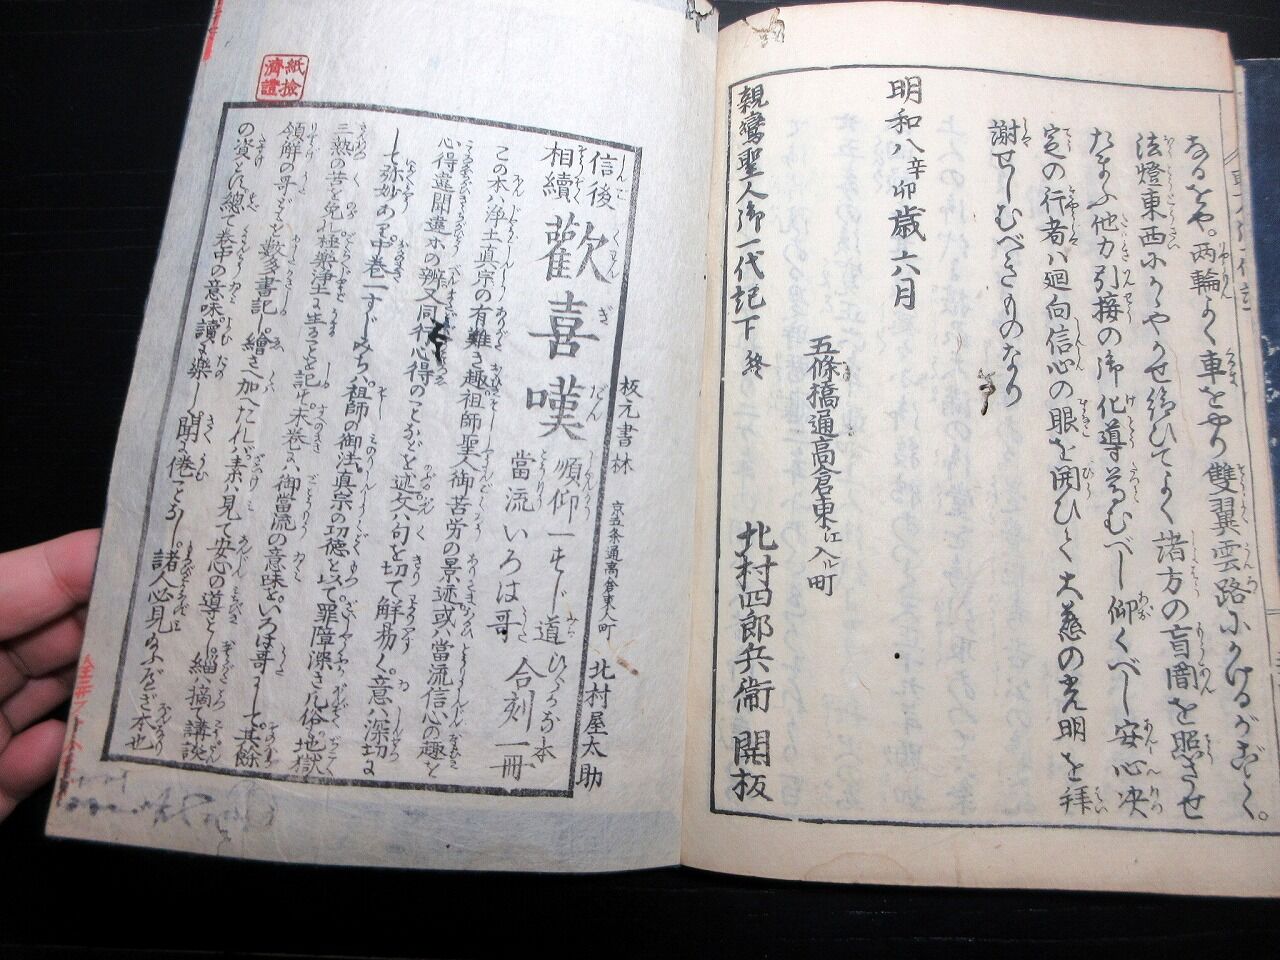 なるをや。両輪よく車をやり雙翼雲路にかけるがごとく。
法燈東西にかゞやかせ給ひてよく諸方の盲闇を照させ
たまふ他力引接の御化導尊むべし仰くべし安心决
定の行者ハ廻向信心の眼を開ひて大慈の光明を拜
謝せしむべきものなり
明和八辛卯歳六月
五條橋通高倉東江入ル町
北村四郎兵衞開板
親鸞聖人御一代記下終
板元書林 京五条通高倉東入町 北村屋太助
信後相續 歡喜嘆
順仰一すじ道 ひらがな本
當流いろは哥 合刻一冊
この本ハ浄土真宗の有難き趣祖師聖人御苦労の景迹或ハ當流信心の趣を
心得違聞違ホの辨又同行心得のことなどを述文ハ句を切て鮮易く。意ハ深切に
して弥妙あり中巻一すじみちハ祖師の御法真宗の功徳を以て罪障深き凡俗の地獄
三熱の苦を免し極樂浄土に生ることを記し末巻にハ御當流の意味をいろは哥にして。其餘
領解の哥どもを数多書記し。繪さへ加へたれバ素ハ見て安心の導とし。細ハ摘て講談
の資とし總て巻中の意味讀も樂しく聞に倦ことなし。諸人必見給ふべき本也
紙撿濟證